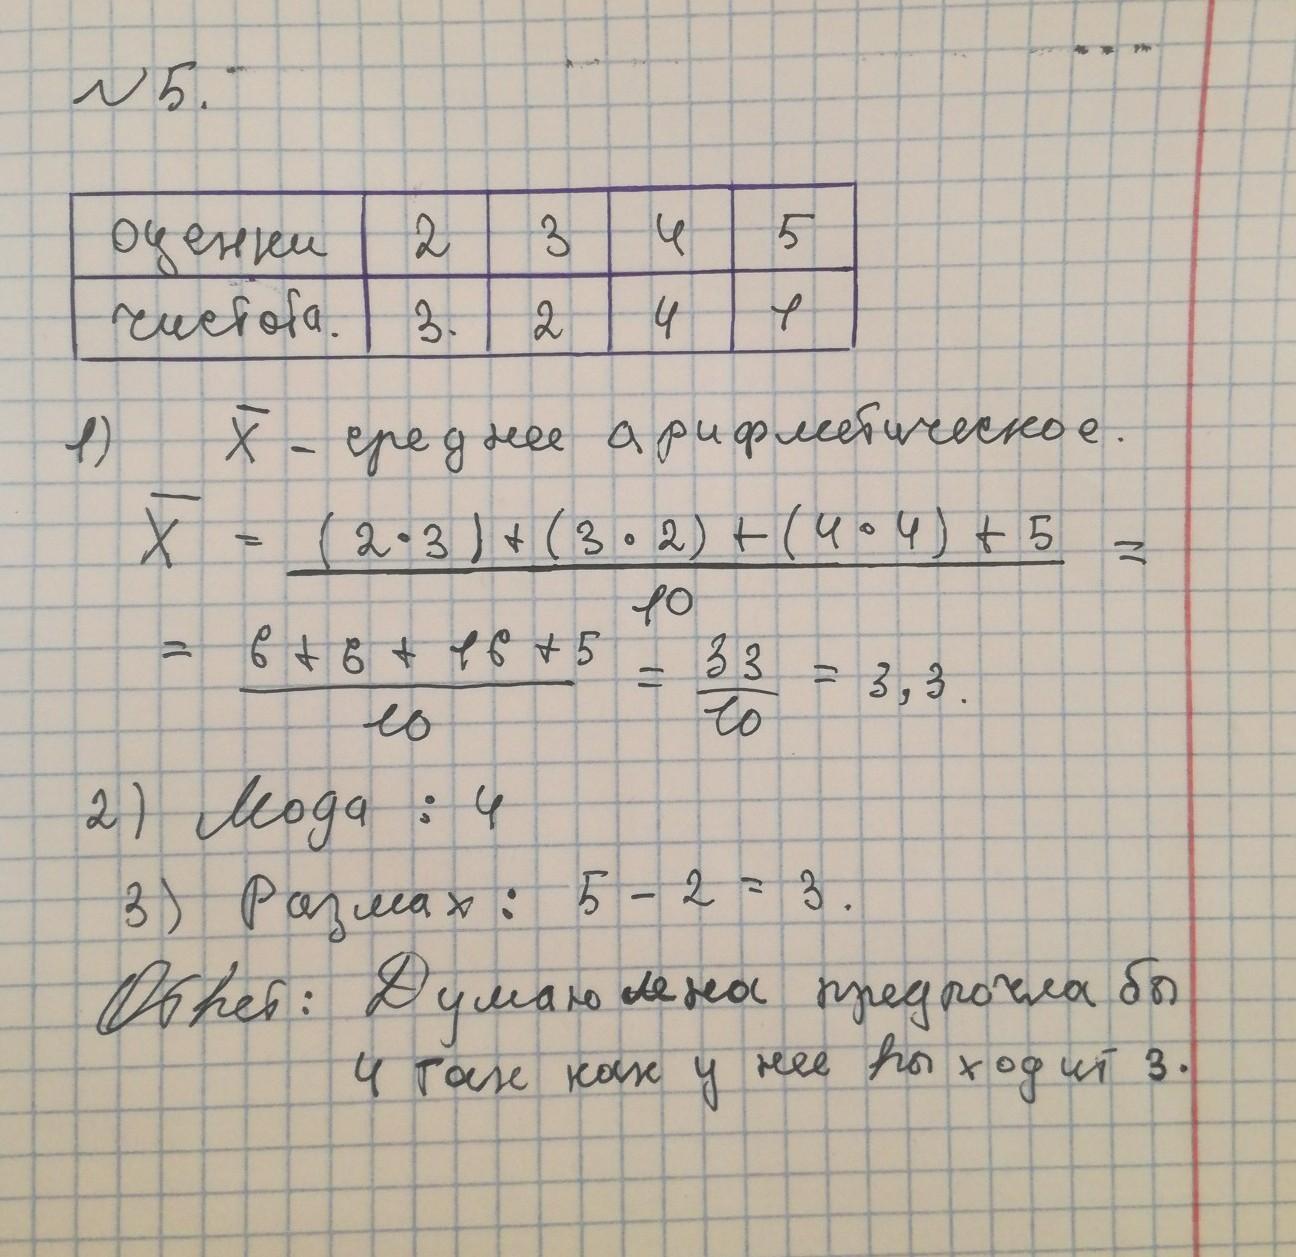 №5.
оценки 2 3 4 5
чистота. 3. 2 4 1
1) X̅ - среднее арифметическое.
X̅ = (2·3)+(3·2)+(4·4)+5 / 10 =
= 6+6+16+5 / 10 = 33/10 = 3,3.
2) Мода : 4
3) Размах: 5-2=3.
Ответ: Думаю лена предпочла бы
4 так как у нее выходит 3.